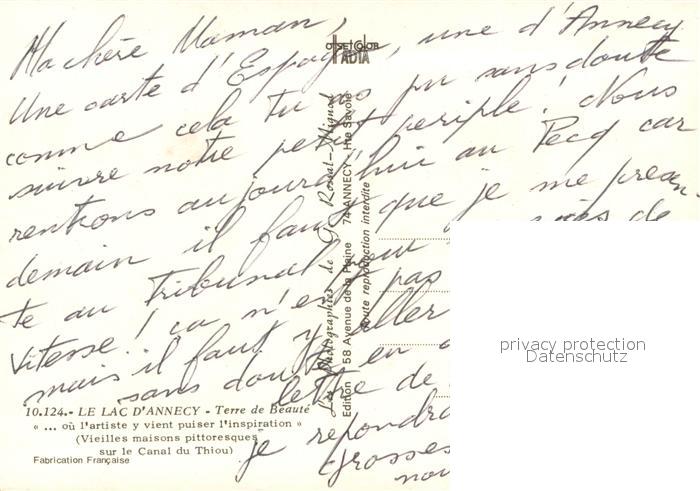 Ma chère Maman,
Une carte d'Espagne, une d'Annecy
comme cela tu as pu sans doute
suivre notre petit périple! Nous
rentrons aujourd'hui au Pecq car
demain il faut que je me présen-
te au Tribunal pour excès de
vitesse! ça n'en pas
mais il faut y aller
sans doute en
lettre de
je répondra
Grosses
nou
OFFSETCOLOR
IADIA
Les Photographies de G. Rossat-Mignod
Edition 58 Avenue de la Plaine 74 ANNECY - Hte Savoie
toute reproduction interdite
10.124.- LE LAC D'ANNECY - Terre de Beauté
« ... où l'artiste y vient puiser l'inspiration »
(Vieilles maisons pittoresques
sur le Canal du Thiou)
Fabrication Française
privacy protection
Datenschutz